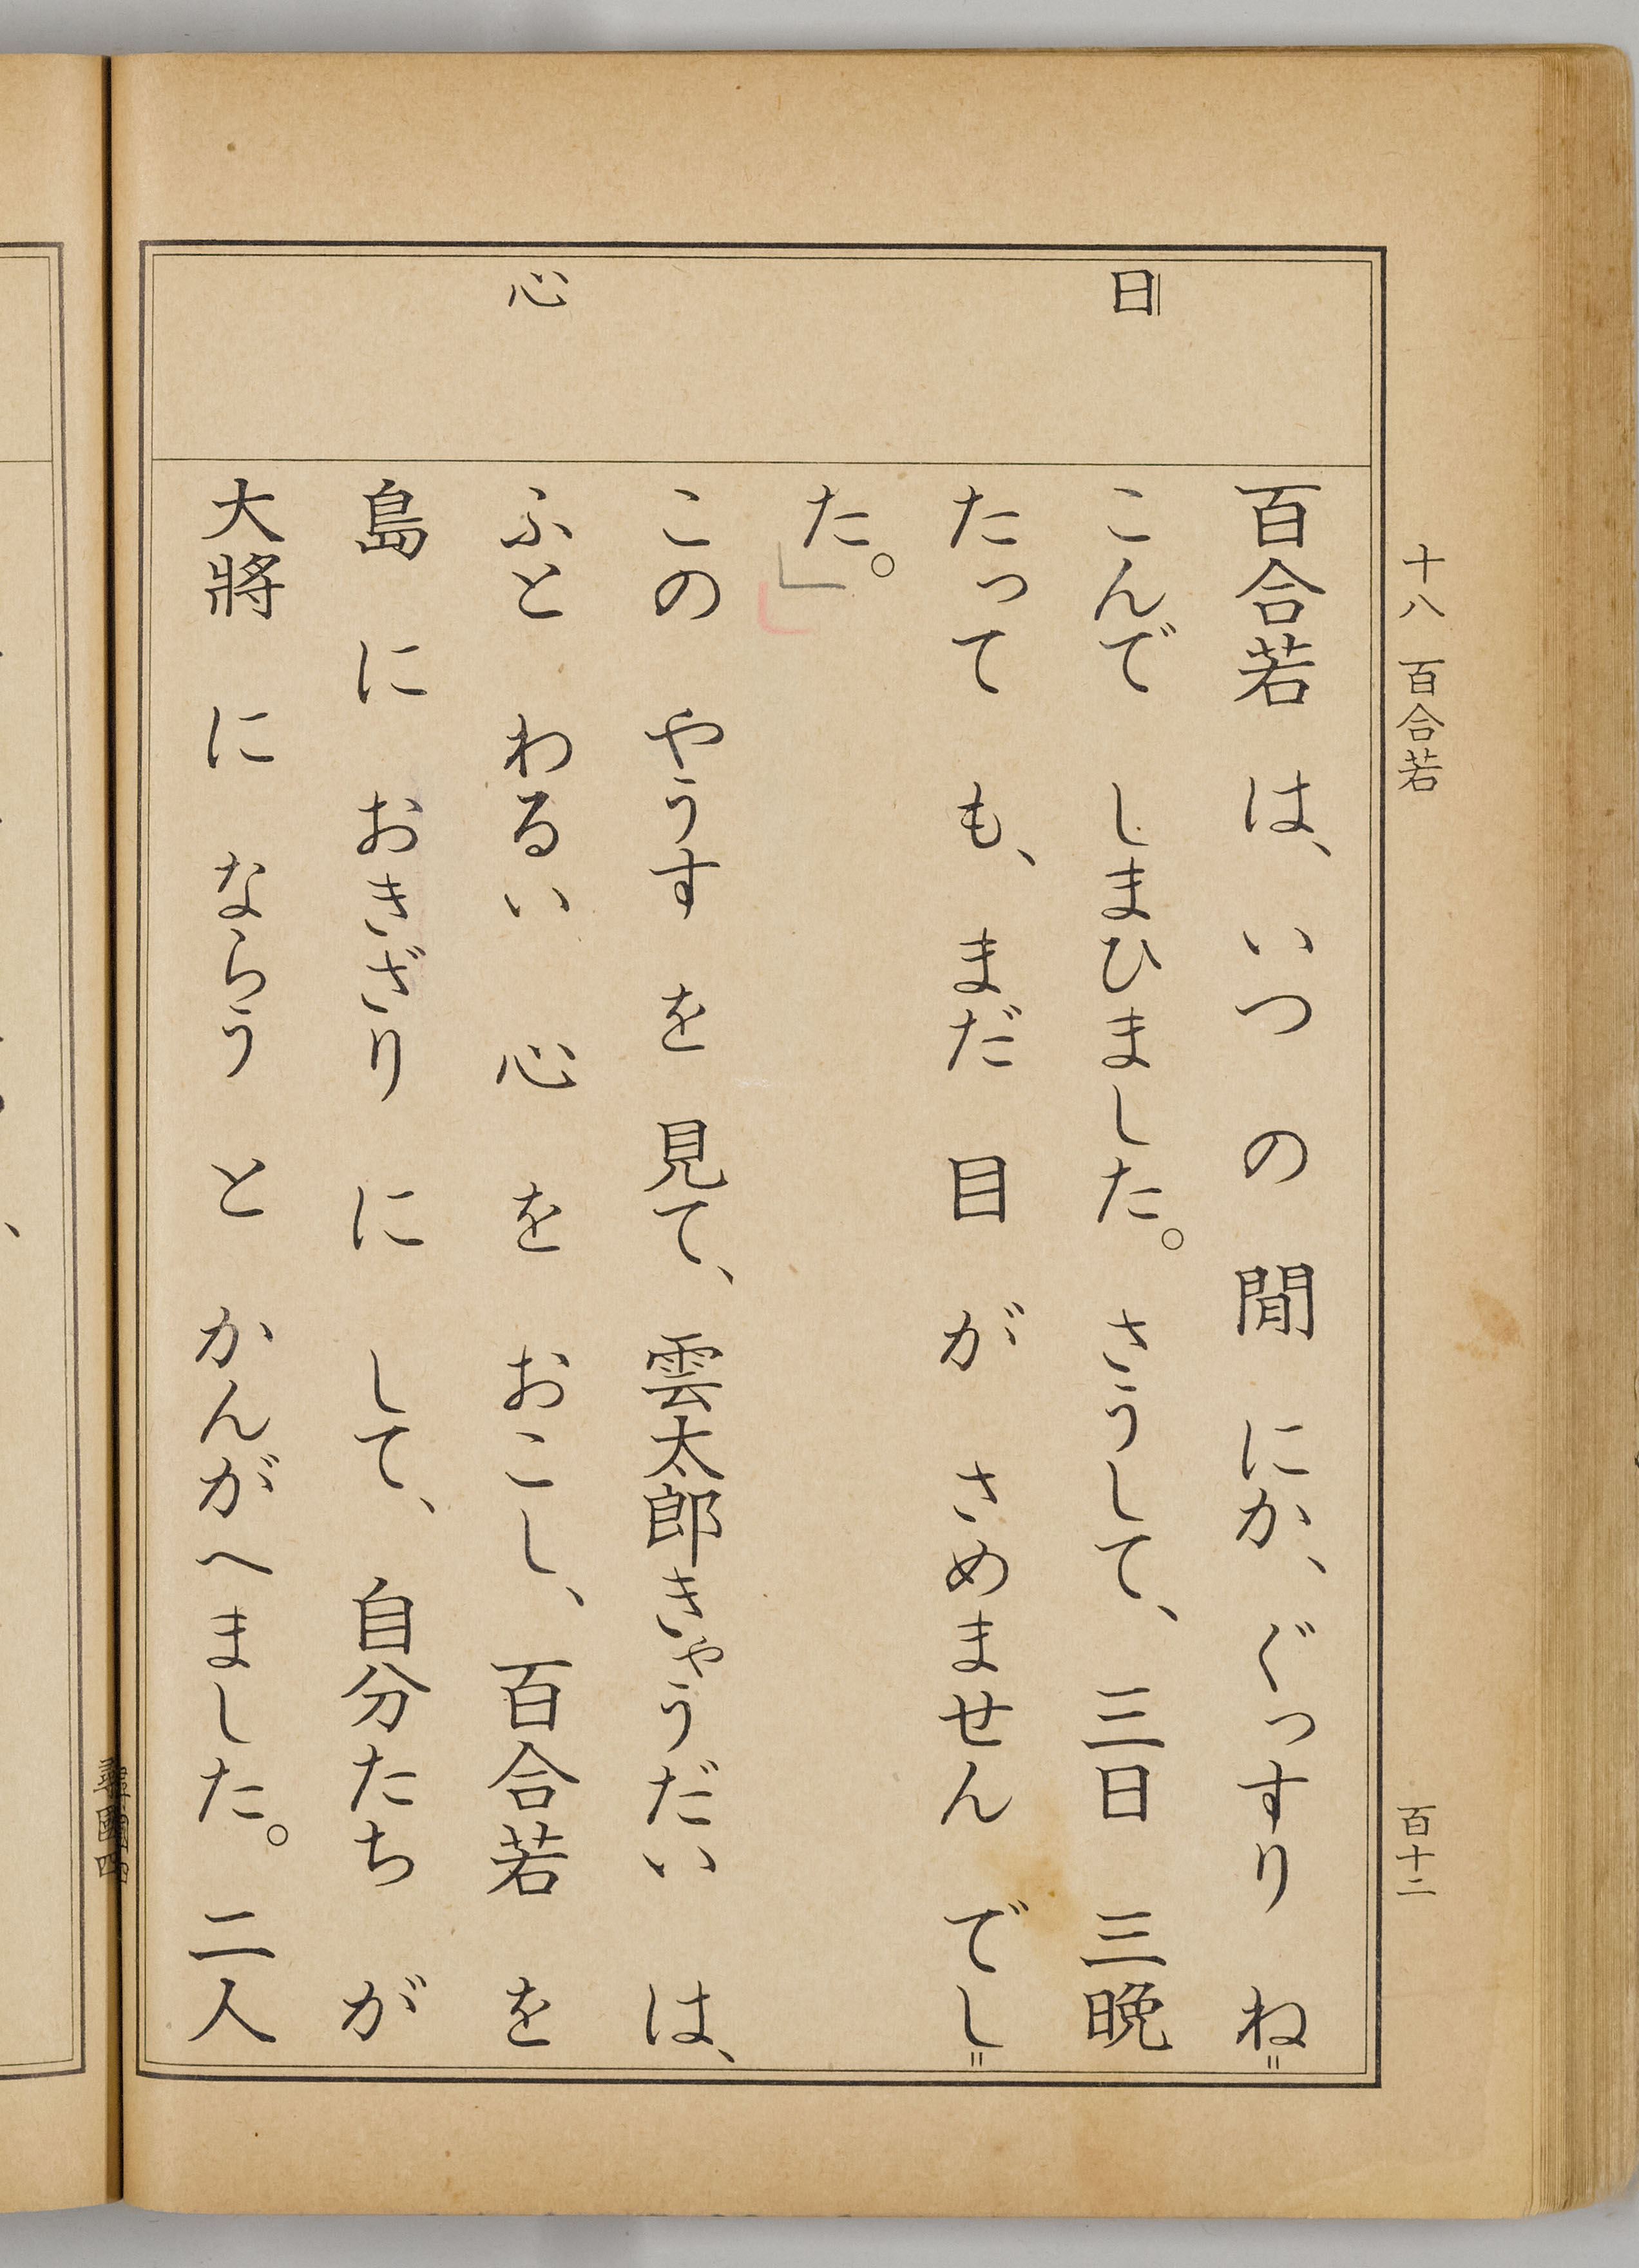 十八 百合若
百十二
日
心
百合若 は、いつ の 間 にか、ぐっすり ね゠
こんで しまひました。さうして、三日 三晩
たって も、まだ 目 が さめません でし゠
た。
この やうす を 見て、雲太郎きゃうだい は、
ふと わるい 心 を おこし、百合若 を
島 に おきざり に して、自分たち が
大將 に ならう と かんがへました。二人